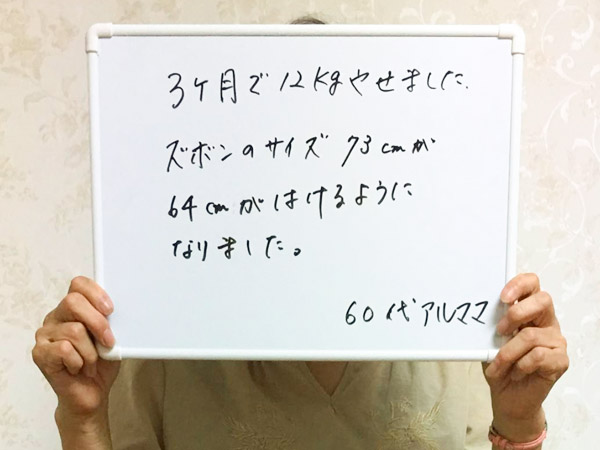 3ケ月で12kgやせました.
ズボンのサイズ 73cmが
64cmがはけるように
なりました。
60代アルママ